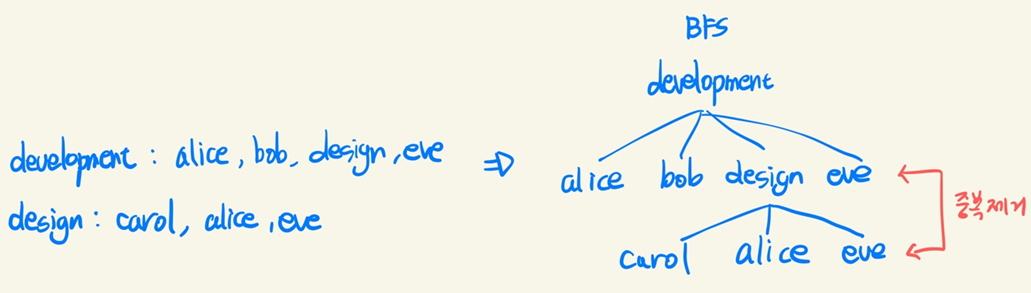 development : alice, bob, design, eve
design : carol, alice, eve
⇒
BFS
development
alice bob design eve
carol alice eve
중복제거